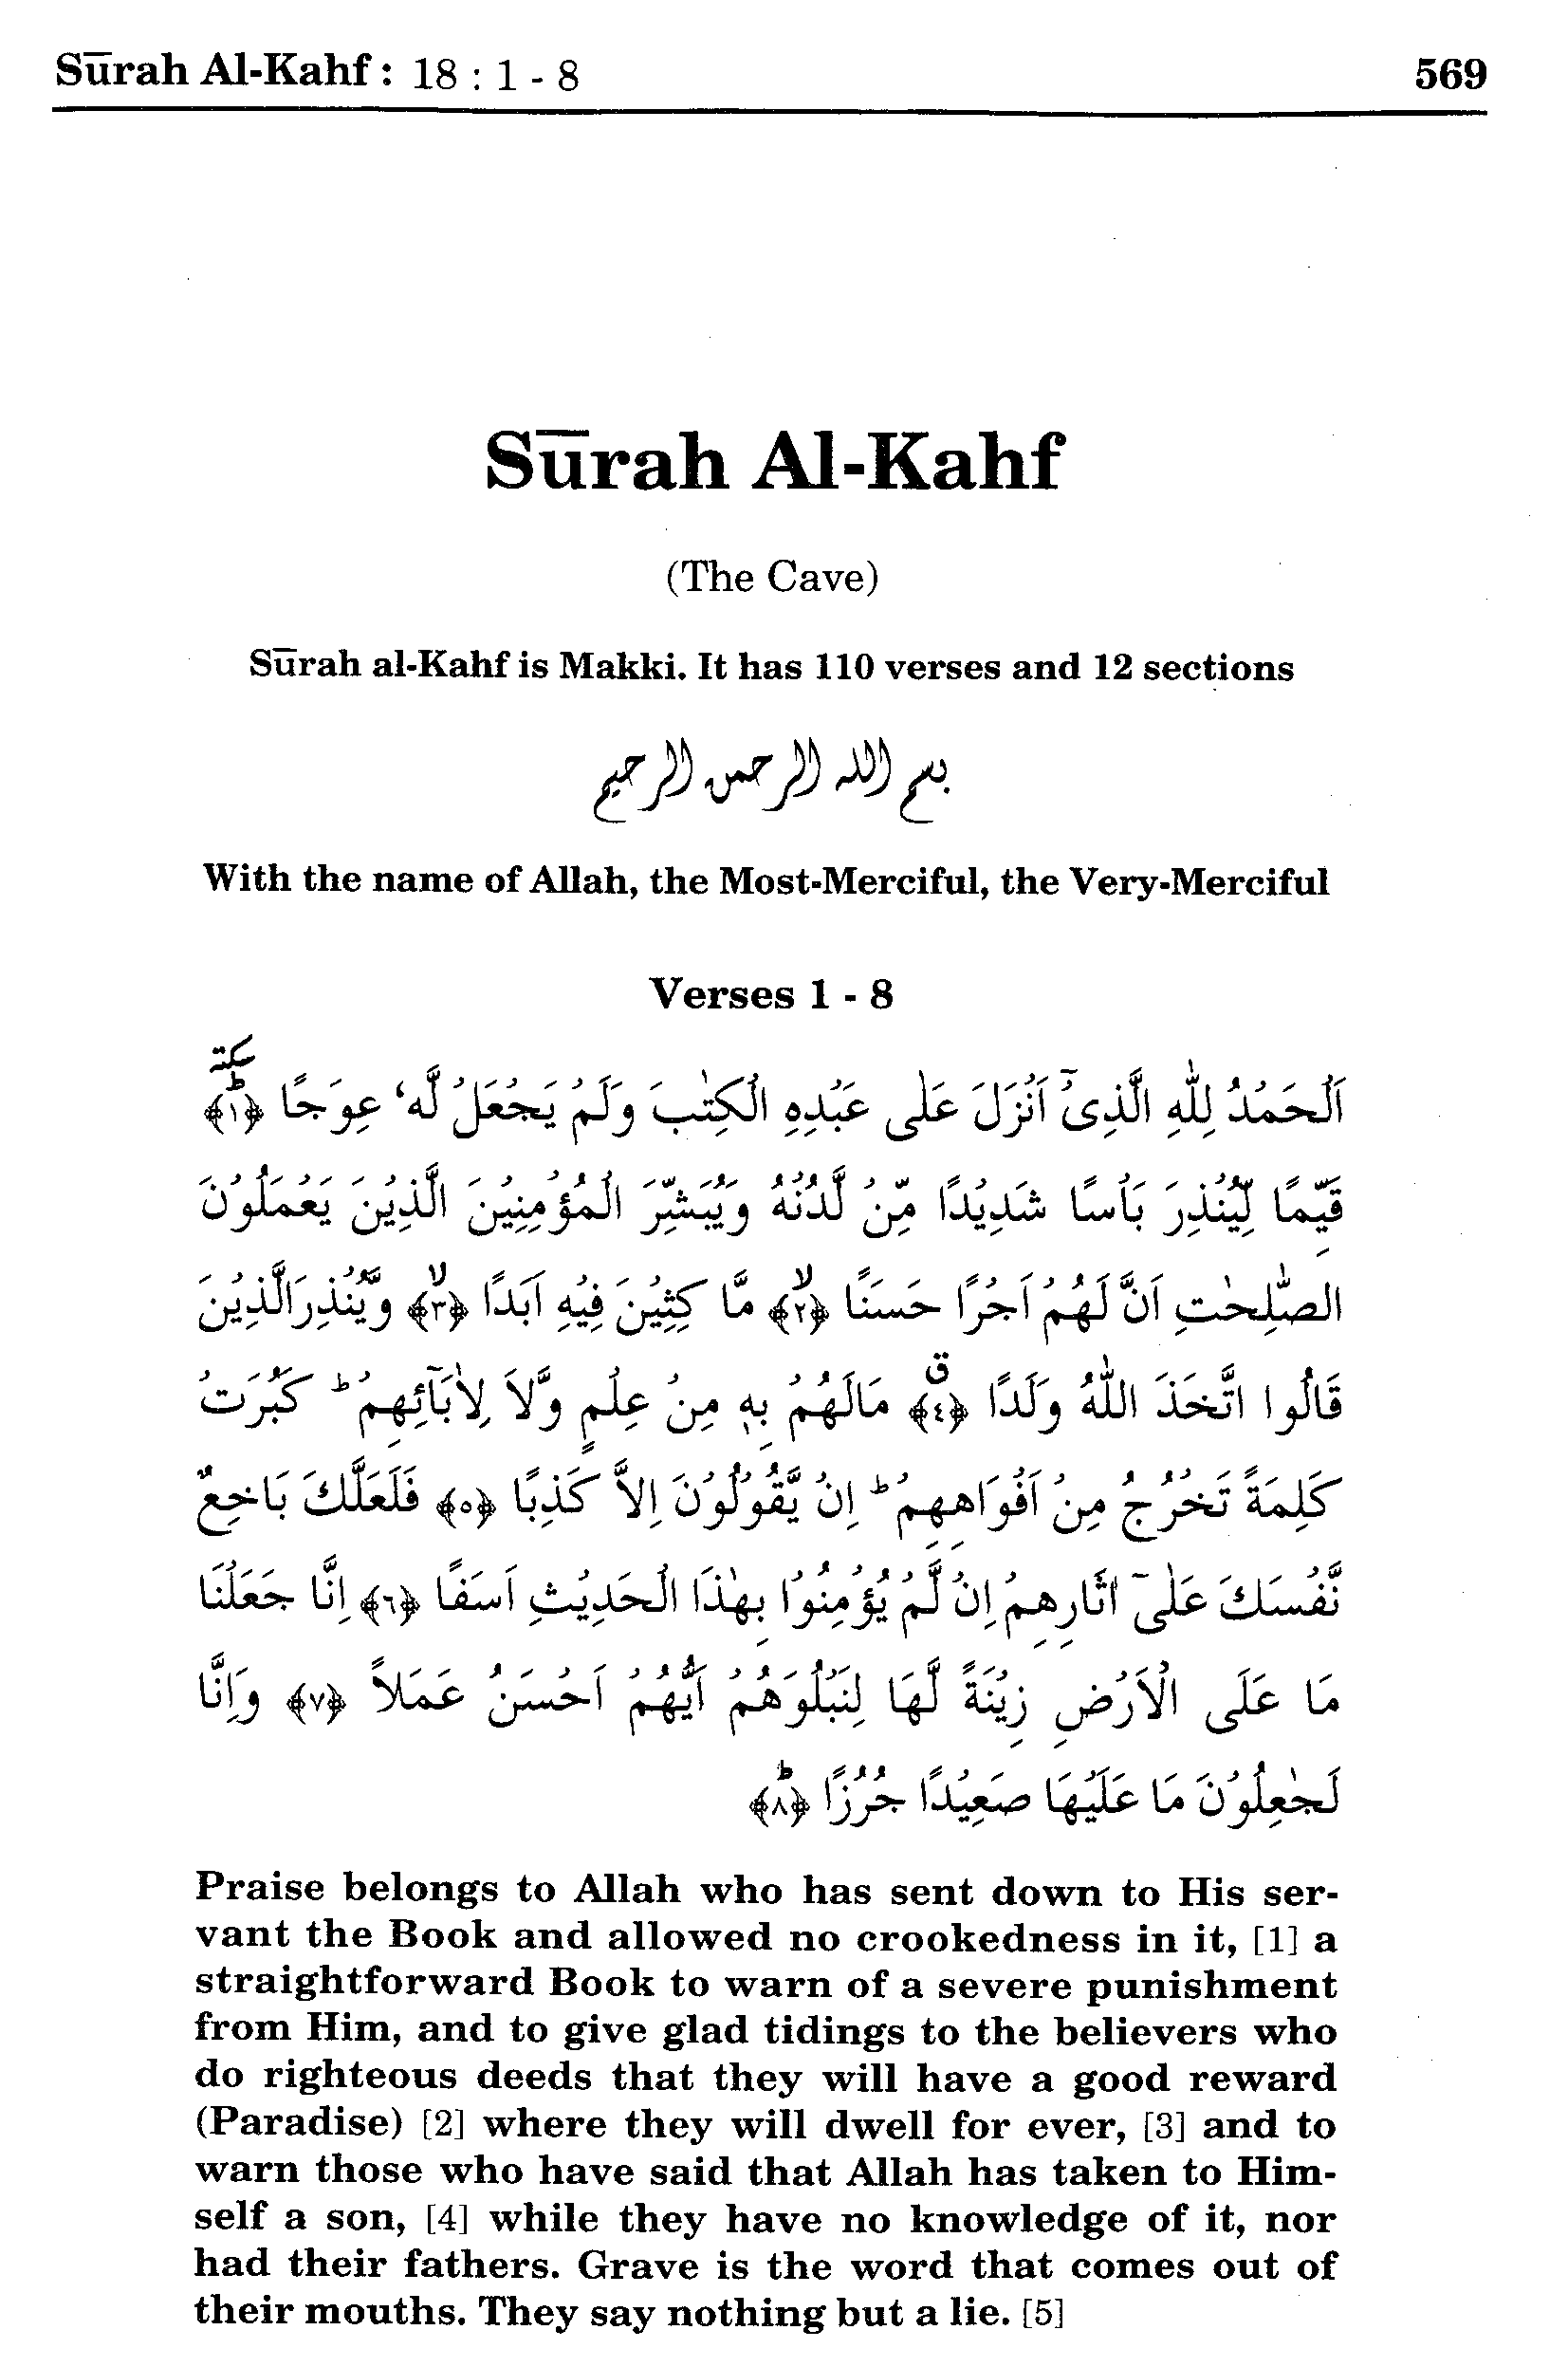 Sūrah Al-Kahf : 18 : 1 - 8 569
Sūrah Al-Kahf
(The Cave)
Sūrah al-Kahf is Makki. It has 110 verses and 12 sections
بسم الله الرحمن الرحيم
With the name of Allah, the Most-Merciful, the Very-Merciful
Verses 1 - 8
سكتة
اَلْحَمْدُ لِلّٰهِ الَّذِىْٓ اَنْزَلَ عَلٰى عَبْدِهِ الْكِتٰبَ وَلَمْ يَجْعَلْ لَّه‘ عِوَجًا ﴿١﴾ؕ
قَيِّمًا لِّيُنْذِرَ بَاْسًا شَدِيْدًا مِّنْ لَّدُنْهُ وَيُبَشِّرَ الْمُؤْمِنِيْنَ الَّذِيْنَ يَعْمَلُوْنَ
الصّٰلِحٰتِ اَنَّ لَهُمْ اَجْرًا حَسَنًا ﴿٢﴾ۙ مَّا كِثِيْنَ فِيْهِ اَبَدًا ﴿٣﴾ۙ وَّيُنْذِرَالَّذِيْنَ
قَالُوا اتَّخَذَ اللّٰهُ وَلَدًا ﴿٤﴾ ق مَالَهُمْ بِهٖ مِنْ عِلْمٍ وَّلاَ لِاٰبَآئِهِمْ ؕ كَبُرَتْ
كَلِمَةً تَخْرُجُ مِنْ اَفْوَاهِهِمْ ؕ اِنْ يَّقُوْلُوْنَ اِلاَّ كَذِبًا ﴿٥﴾ فَلَعَلَّكَ بَاخِعٌ
نَّفْسَكَ عَلٰىٓ اٰثَارِهِمْ اِنْ لَّمْ يُؤْمِنُوْا بِهٰذَا الْحَدِيْثِ اَسَفًا ﴿٦﴾ اِنَّا جَعَلْنَا
مَا عَلَى الْاَرْضِ زِيْنَةً لَّهَا لِنَبْلُوَهُمْ اَيُّهُمْ اَحْسَنُ عَمَلاً ﴿٧﴾ وَاِنَّا
لَجٰعِلُوْنَ مَا عَلَيْهَا صَعِيْدًا جُرُزًا ﴿٨﴾ؕ
Praise belongs to Allah who has sent down to His ser-
vant the Book and allowed no crookedness in it, [1] a
straightforward Book to warn of a severe punishment
from Him, and to give glad tidings to the believers who
do righteous deeds that they will have a good reward
(Paradise) [2] where they will dwell for ever, [3] and to
warn those who have said that Allah has taken to Him-
self a son, [4] while they have no knowledge of it, nor
had their fathers. Grave is the word that comes out of
their mouths. They say nothing but a lie. [5]